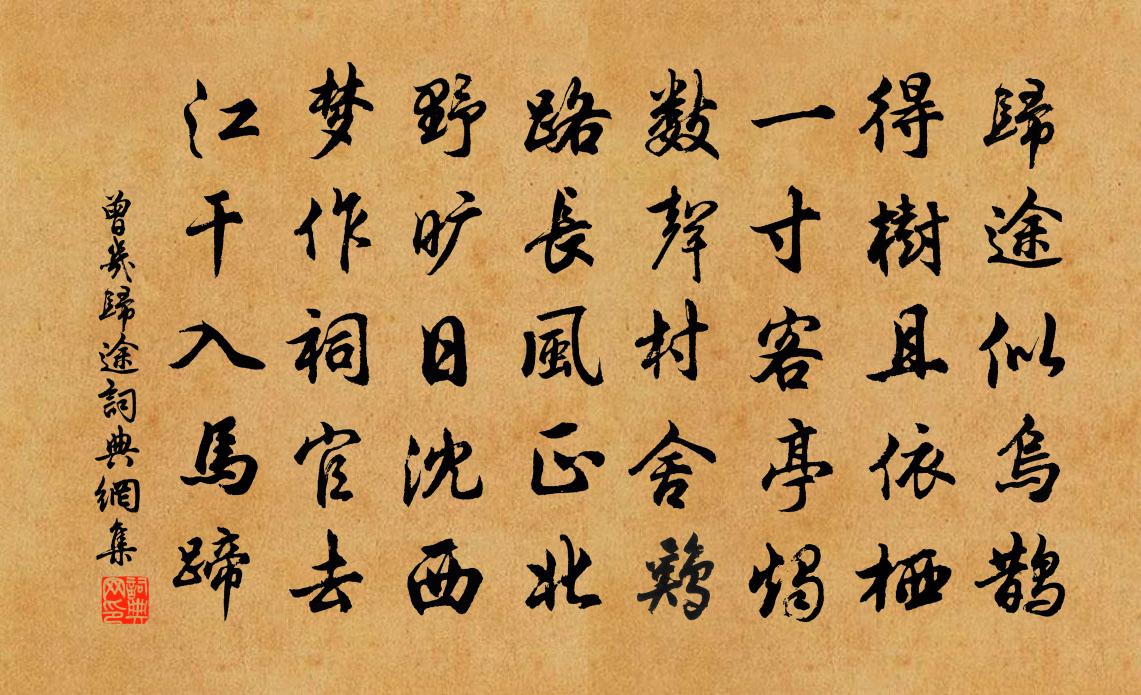 歸途似烏鵲
得樹且依栖
一寸客亭燭
數聲村舍鷄
路長風正北
野旷日沈西
梦作祠官去
江干入馬蹄
曾幾歸途詞典網集
詞典网印